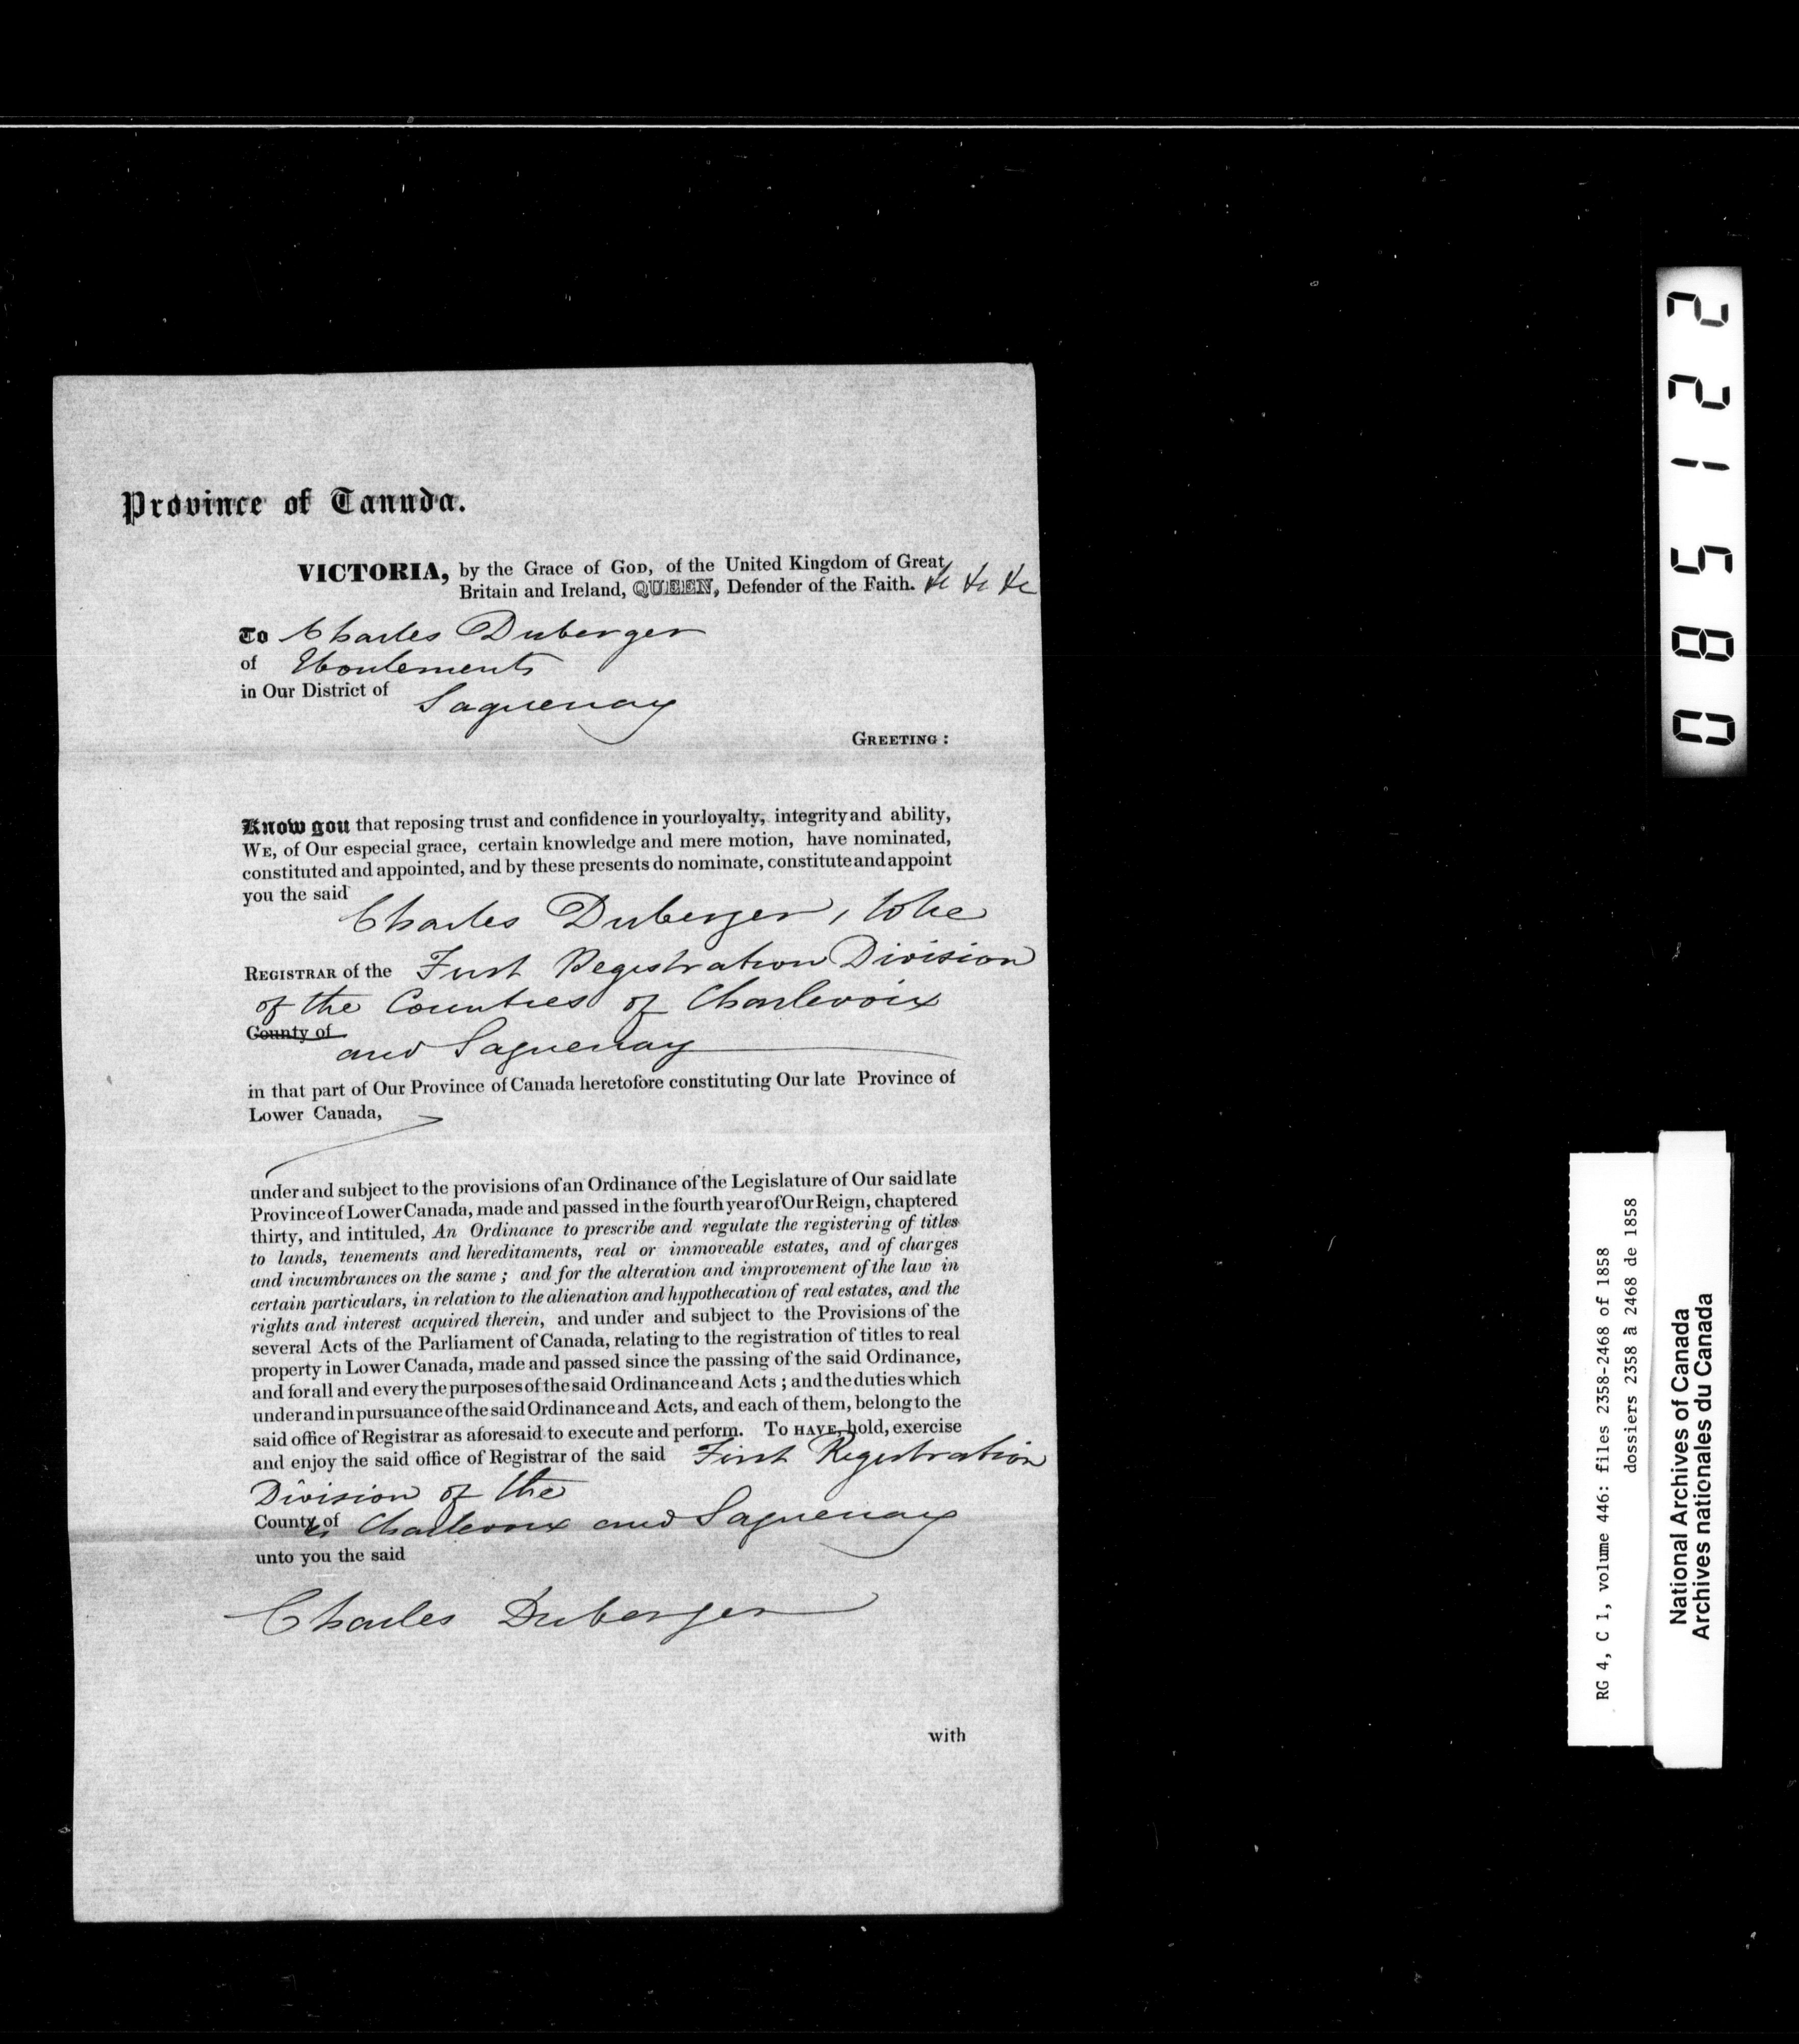 Province of Canada.
VICTORIA, by the Grace of GOD, of the United Kingdom of Great
Britain and Ireland, QUEEN, Defender of the Faith. &c &c &c
To Charles Duberger
of Eboulements
in Our District of
Saguenay
GREETING:
Know you that reposing trust and confidence in your loyalty, integrity and ability,
WE, of Our especial grace, certain knowledge and mere motion, have nominated,
constituted and appointed, and by these presents do nominate, constitute and appoint
you the said
Charles Duberger, to be
REGISTRAR of the First Registration Division
of the Counties of Charlevoix
County of
and Saguenay
in that part of Our Province of Canada heretofore constituting Our late Province of
Lower Canada,
under and subject to the provisions of an Ordinance of the Legislature of Our said late
Province of Lower Canada, made and passed in the fourth year of Our Reign, chaptered
thirty, and intituled, An Ordinance to prescribe and regulate the registering of titles
to lands, tenements and hereditaments, real or immoveable estates, and of charges
and incumbrances on the same; and for the alteration and improvement of the law in
certain particulars, in relation to the alienation and hypothecation of real estates, and the
rights and interest acquired therein, and under and subject to the Provisions of the
several Acts of the Parliament of Canada, relating to the registration of titles to real
property in Lower Canada, made and passed since the passing of the said Ordinance,
and for all and every the purposes of the said Ordinance and Acts; and the duties which
under and in pursuance of the said Ordinance and Acts, and each of them, belong to the
said office of Registrar as aforesaid to execute and perform. To HAVE, hold, exercise
and enjoy the said office of Registrar of the said First Registration
Division of the
County of Charlevoix and Saguenay
unto you the said
Charles Duberger
with
085122
RG 4, C 1, volume 446: files 2358-2468 of 1858
dossiers 2358 à 2468 de 1858
National Archives of Canada
Archives nationales du Canada